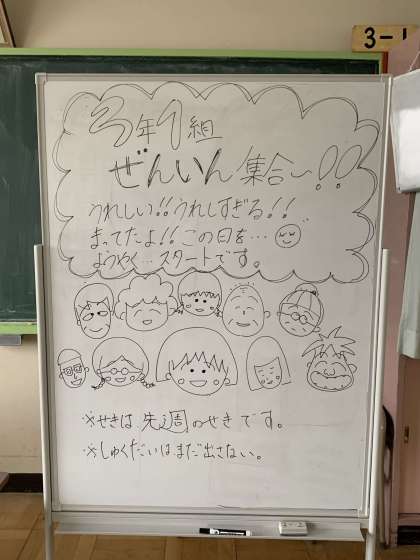 3-1
3年1組
ぜんいん集合～!!
うれしい!!うれしすぎる!!
まってたよ!!この日を…
ようやく…スタートです。
※せきは先週のせきです。
※しゅくだいはまだ出さない。